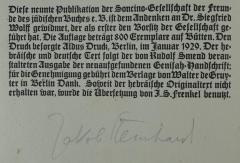 Diese neunte Publikation der Soncino-Gesellschaft der Freun-
de des jüdischen Buches e. V. ist dem Andenken an Dr. Siegfried
Wolff gewidmet, der als erster den Vorsitz der Gesellschaft ge-
führt hat. Die Auflage beträgt 800 Exemplare auf Bütten. Den
Druck besorgte Aldus Druck, Berlin, im Januar 1929. Der he-
bräische und deutsche Text folgt der von Rudolf Smend veran-
stalteten Ausgabe der neuaufgefundenen Genisah-Handschrift;
für die Genehmigung gebührt dem Verlage von Walter de Gruy-
ter in Berlin Dank. Soweit der hebräische Originaltext nicht
erhalten war, wurde die Übersetzung von J.S. Frenkel benutzt.
Jakob Steinhardt